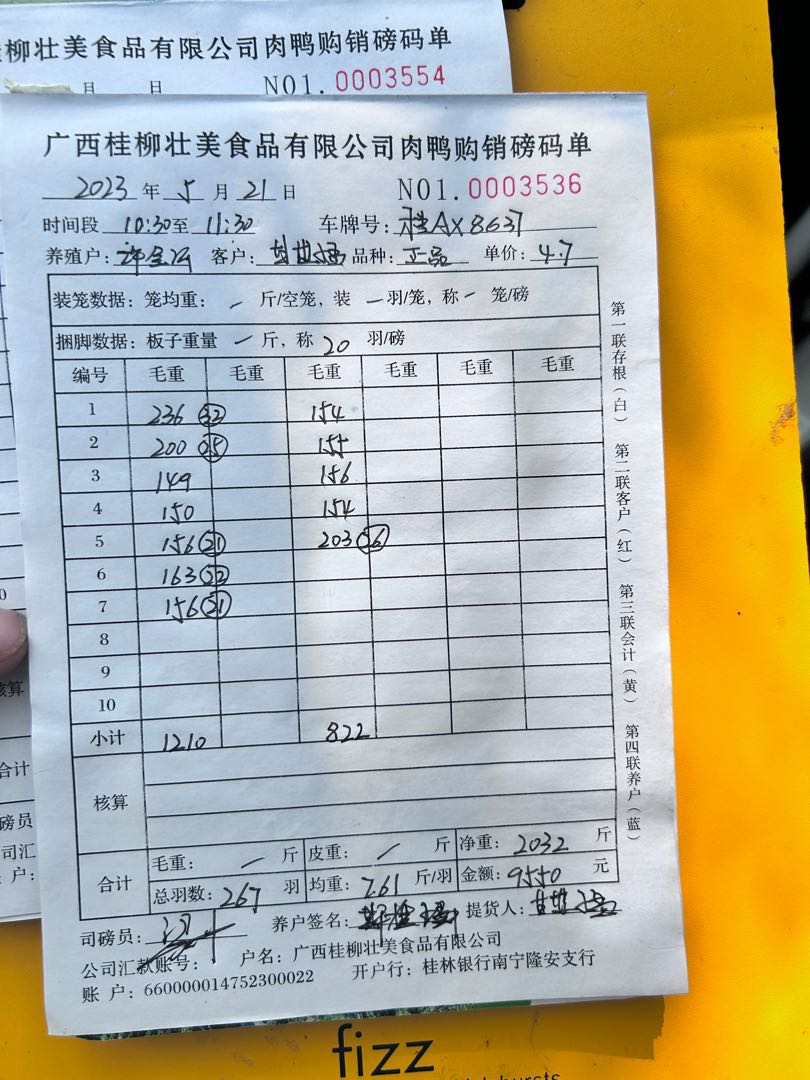 柳壮美食品有限公司肉鸭购销磅码单
月 日 NO1.0003554
广西桂柳壮美食品有限公司肉鸭购销磅码单
2023 年 5 月 21 日 NO1.0003536
时间段 10:30至 11:30 车牌号: 桂AX8637
养殖户: 客户: 品种: 正品 单价: 4.7
装笼数据: 笼均重: - 斤/空笼, 装 - 羽/笼, 称 - 笼/磅
捆脚数据: 板子重量 - 斤, 称 20 羽/磅
编号 毛重 毛重 毛重 毛重 毛重 毛重
1 236 32 154
2 200 25 155
3 149 156
4 150 154
5 156 21 203 26
6 163 22
7 156 21
8
9
10
小计 1210 822
核算
合计 毛重: - 斤 皮重: - 斤 净重: 2032 斤
总羽数: 267 羽 均重: 7.61 斤/羽 金额: 9550 元
司磅员: 养户签名: 提货人:
公司汇款账号: 户名: 广西桂柳壮美食品有限公司
账 户: 660000014752300022 开户行: 桂林银行南宁隆安支行
第一联存根(白) 第二联客户(红) 第三联会计(黄) 第四联养户(蓝)
核算
合计
磅员
司汇
户:
fizz